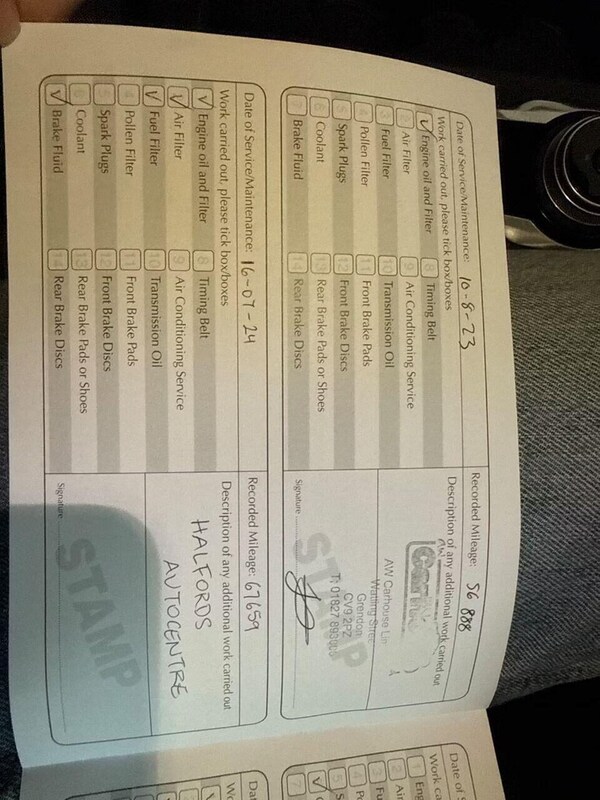 Date of Service/Maintenance: 10-8-23
Recorded Mileage: 56 888
Work carried out, please tick box/boxes
Description of any additional work carried out
1 Engine oil and Filter
8 Timing Belt
2 Air Filter
9 Air Conditioning Service
3 Fuel Filter
10 Transmission Oil
4 Pollen Filter
11 Front Brake Pads
5 Spark Plugs
12 Front Brake Discs
6 Coolant
13 Rear Brake Pads or Shoes
7 Brake Fluid
14 Rear Brake Discs
AW Carhouse
Watling Street
Grendon
CV9 2PZ
STAMP
Signature
Date of Service/Maintenance: 16-07-24
Recorded Mileage: 67659
Work carried out, please tick box/boxes
Description of any additional work carried out
Engine oil and Filter
8 Timing Belt
Air Filter
9 Air Conditioning Service
Fuel Filter
10 Transmission Oil
4 Pollen Filter
11 Front Brake Pads
5 Spark Plugs
12 Front Brake Discs
6 Coolant
13 Rear Brake Pads or Shoes
Brake Fluid
14 Rear Brake Discs
HALFORDS
AUTOCENTRE
STAMP
Signature
Date of
Work ca
1 Eng
2 Air
3 Fu
4 P
5 S
Da
Wo